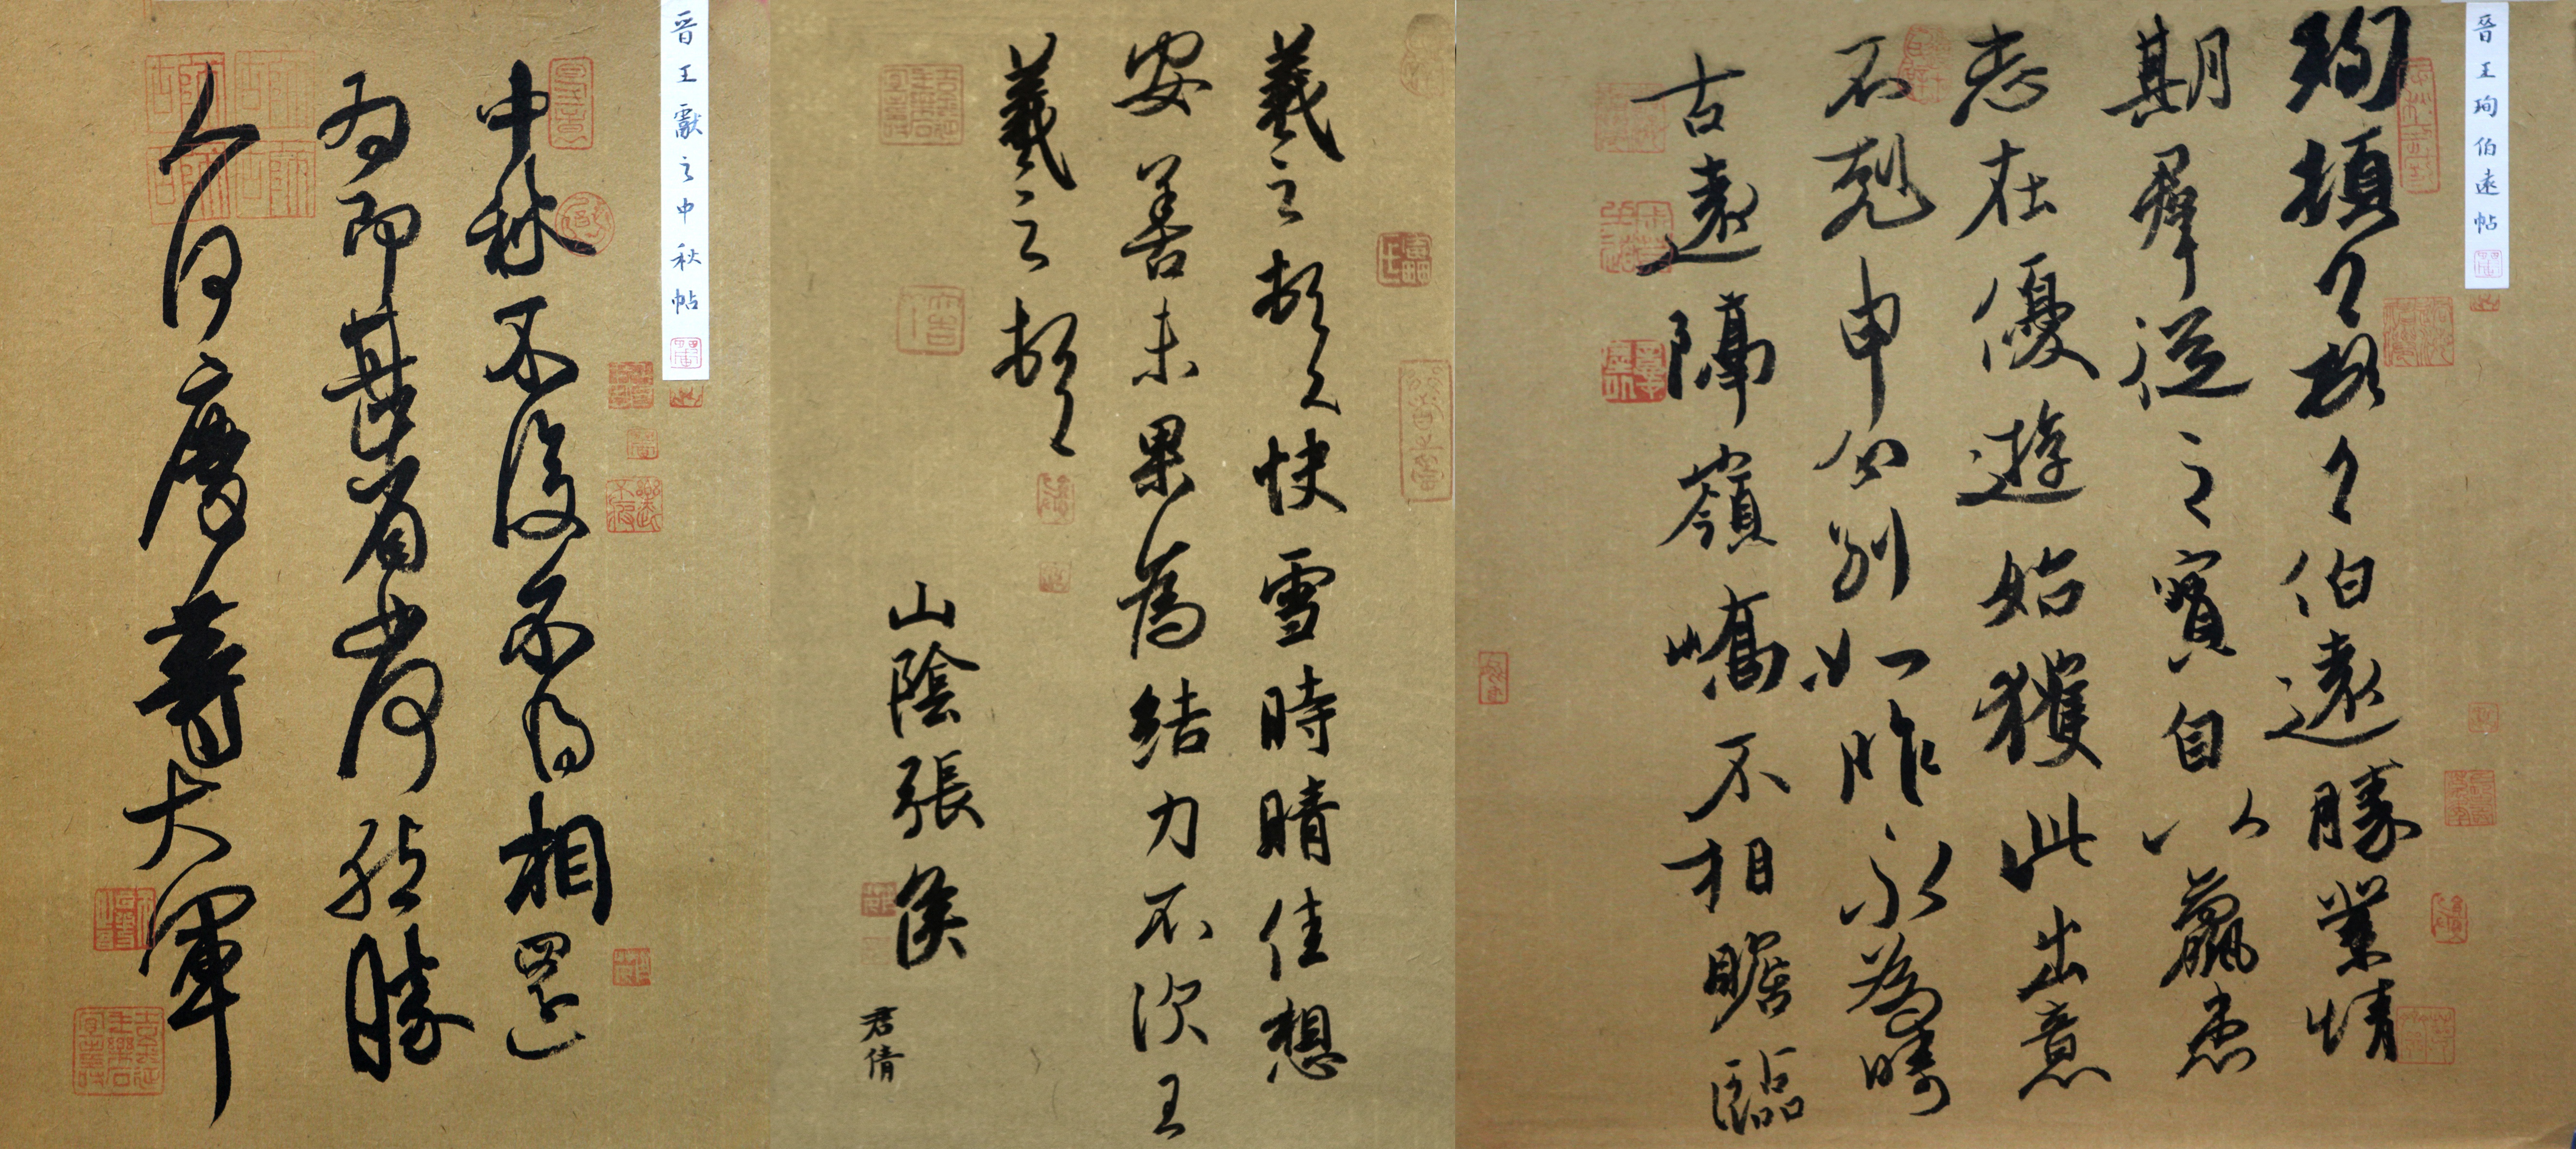 晉王珣伯遠帖
珣頓首頓首伯遠勝業情
期羣從之寶自以羸患
志在優遊始獲此出意
不剋申分別如昨永為疇
古遠隔嶺嶠不相瞻臨
羲之頓首快雪時晴佳想
安善未果為結力不次王
羲之頓首
山陰張侯
君倩
晋王獻之中秋帖
中秋不復不得相還
為即甚省如何然勝
人何慶等大軍